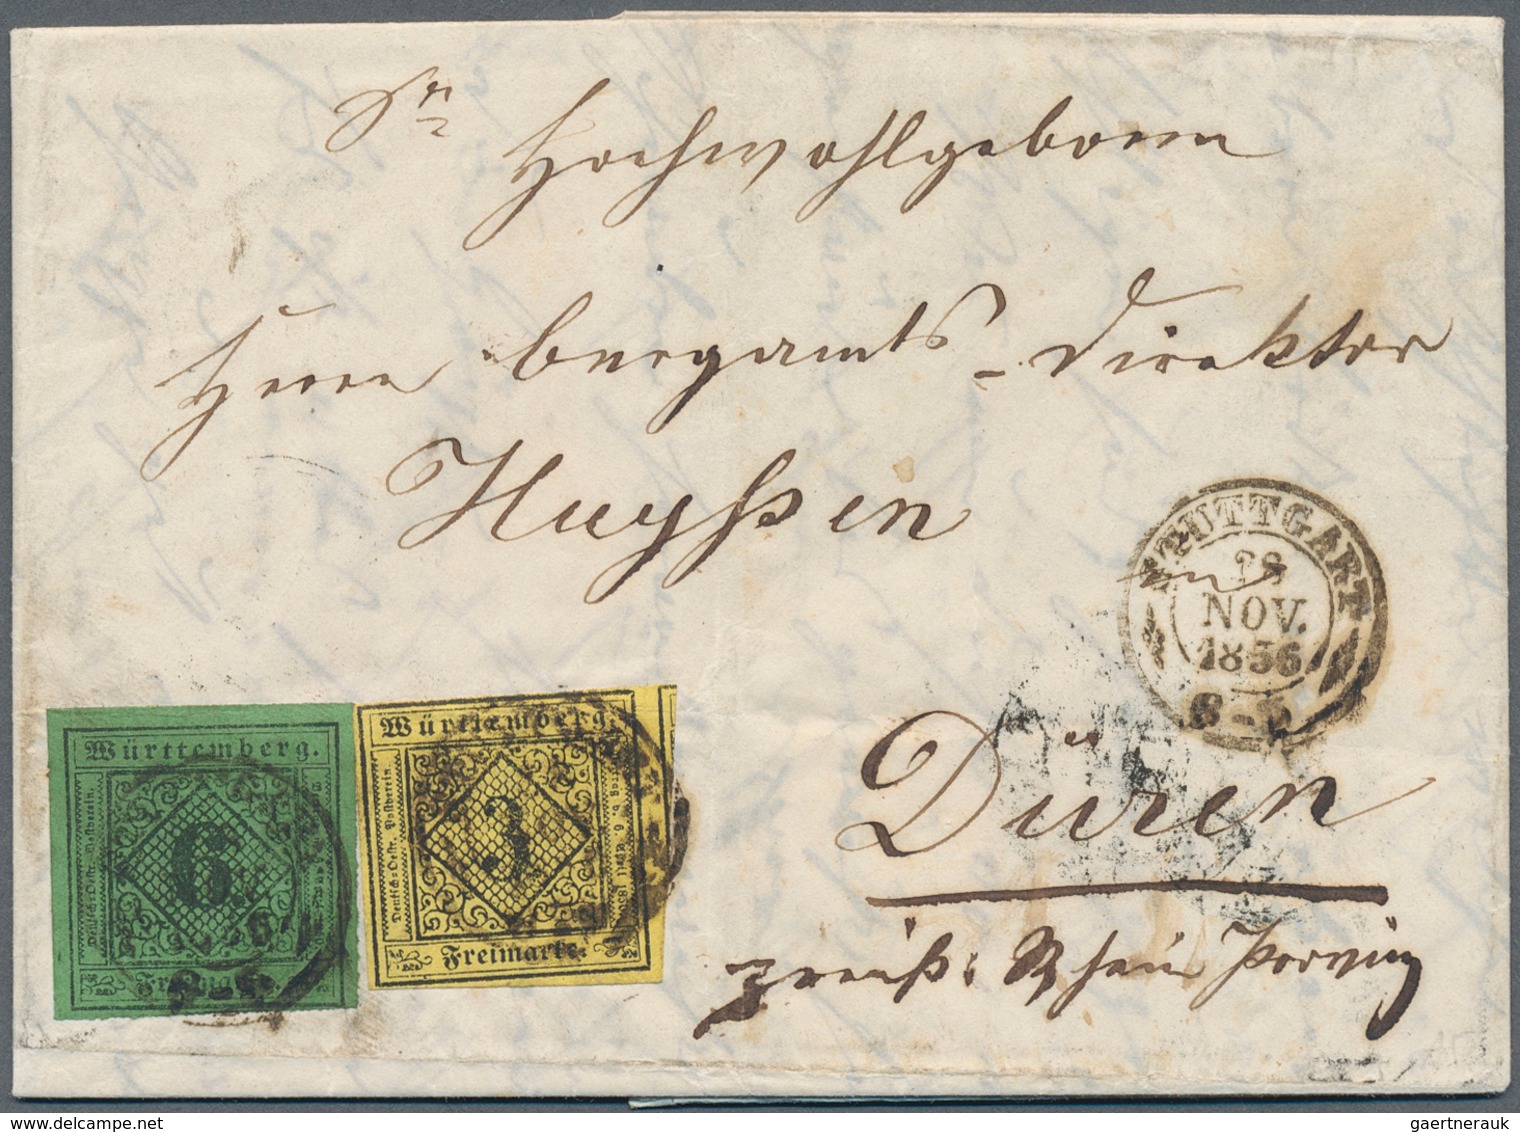 Sr
Hochwohlgeboren
Herrn Bergamts-Direktor
Huyssen
in
STUTTGART
28
NOV.
1856
Düren
preuß: Rhein Provinz
Württemberg.
Deutsch-Oestr. Postverein.
6
Freimarke.
Württemberg.
Deutsch-Oestr. Postverein.
3
Vertr. v. 6. April 1850.
Freimarke.
gaertnerauk